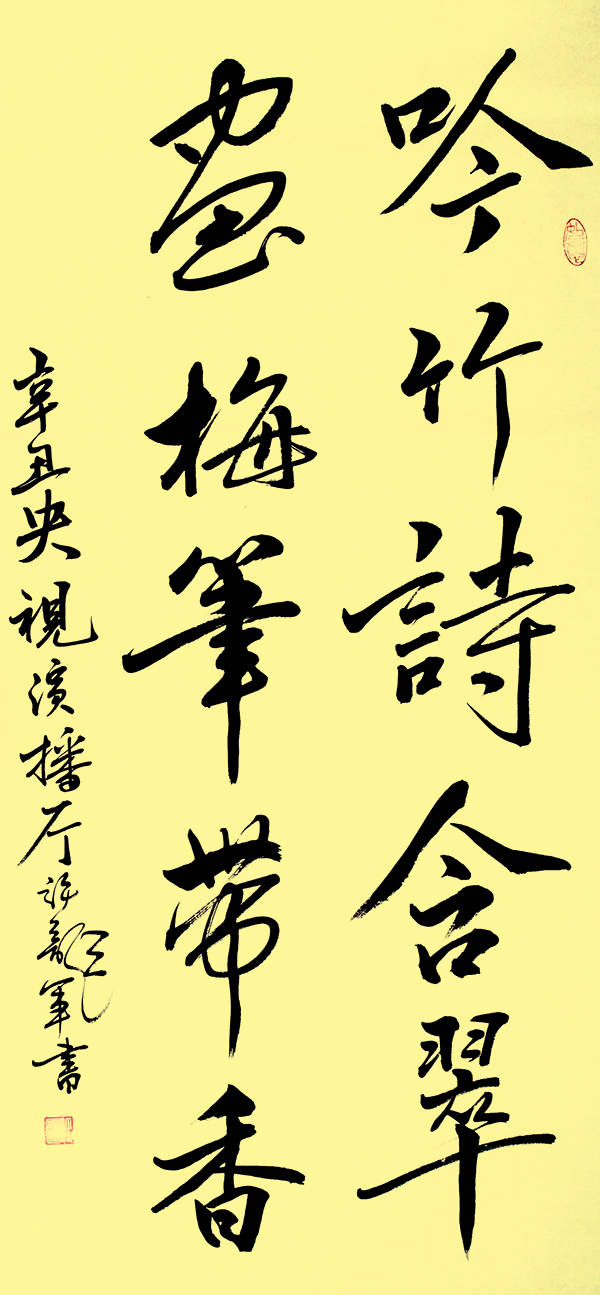 吟竹詩含翠
畫梅筆帶香
辛丑央視演播厅許龍軍書